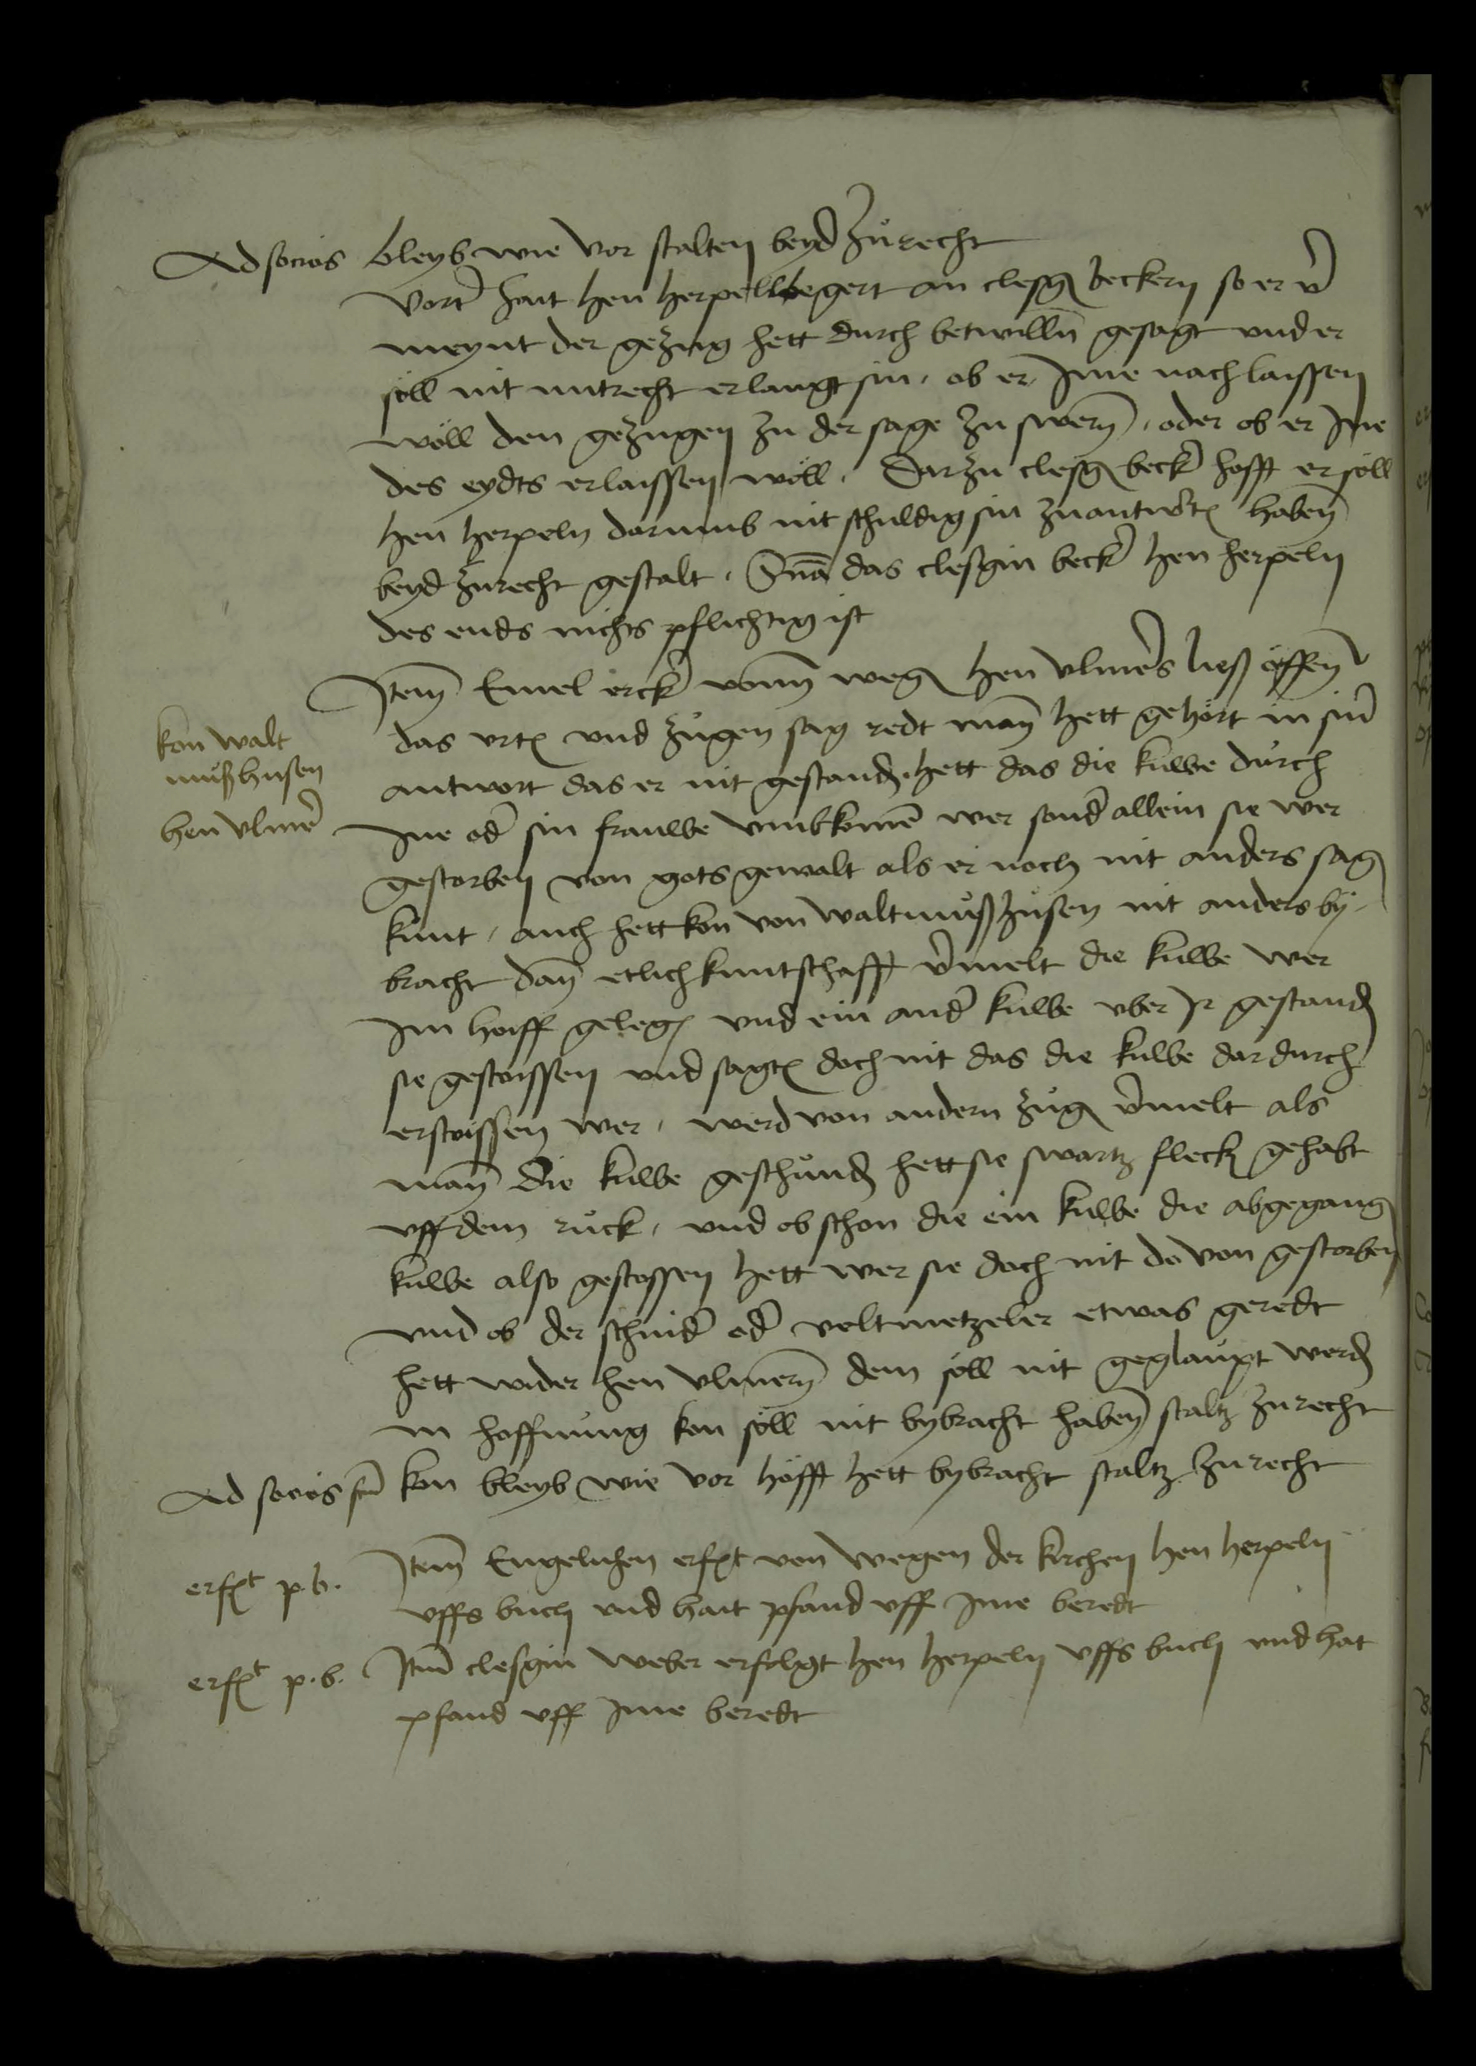 Ad socios bleyb wie vor stalten beyd zurecht
Vort hait Hen Herpell begert an Clesgin Beckern so er v̄
meynt der gezug hett durch betwilln gesagt und er
söll nit mitrecht erlangt sin, ob er Ime nach laissen
wöll den gezugen zu der sage zu swern, oder ob er Ime
des eydts erlaissen wöll, Darzu Clesgin Beck hofft er söll
Hen Herpeln darumb nit schuldig sin zuantwort haben
beyd zurecht gestalt, das Clesgin Beck Hen Herpeln
des ends nichts pflichtig ist
Kon Walt
mußhusen
Hen Ulmer
Item Emel Erck vonn wegen Hen Ulmers ließ öffen
das urtel und zugen sag redt man hett gehört in sin
antwort das er nit gestanden hett das die kuwe durch
Ine od sin frauwe umbkomen wer sond allein sie wer
gestorben von gots gewalt als er noch nit anders sag
kunt, auch hett Kon von Waltmußhusen nit anders by
bracht dan etlich kuntschafft v̄melt die kuwe wer
Im hoiff gelegen und ein and kuwe uber Ir gestanden
sie gestoissen und sagten doch nit das die kuwe dardurch
erstoissen wer, werd von andern zugen v̄melt als
man die kuwe geschunden hett sie swartz flecken gehabt
uff dem ruck, und ob schon die ein kuwe die abgegang
kuwe also gestossen hett wer sie doch nit do von gestorben
und ob der schnid od veltmetzeler etwas geredt
hett wider Hen Ulmern dem söll nit geglaupt werden
In hoffnung Kon söll nit bybracht haben staltz zurecht
Ad socios Kon bleyb wie vor hofft hett bybracht staltz zurecht
erft p. b. Item Engelnhen erft von wegen der kirchen Hen Herpeln
uffs buch und hait pfand uff Ime beredt
erft p. b. Item Clesgin Weber erfolgt Hen Herpeln uffs buch und hat
pfand uff Ime beredt